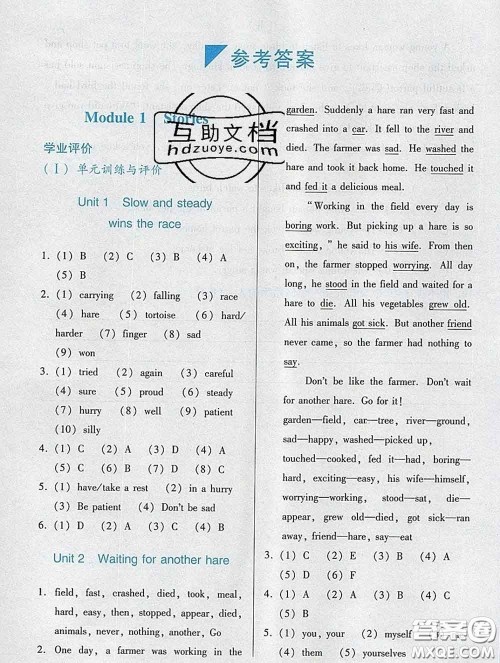 参考答案
Module 1 Stories
学业评价
(Ⅰ) 单元训练与评价
Unit 1 Slow and steady
wins the race
1. (1) B (2) C (3) B (4) A
(5) B
2. (1) carrying (2) falling (3) race
(4) hare (5) tortoise (6) hard/
harder (7) finger (8) sad
(9) won
3. (1) tried (2) again (3) careful
(4) sure (5) proud (6) steady
(7) hurry (8) well (9) patient
(10) silly
4. (1) C (2) A (3) D (4) A
(5) B
5. (1) have/take a rest (2) in a hurry
(3) Be patient (4) Don't be sad
6. (1) D (2) A (3) B (4) C
Unit 2 Waiting for another hare
1. field, fast, crashed, died, took, meal,
hard, easy, then, stopped, appear, died,
animals, never, nothing, another, Go
2. One day, a farmer was working in the
garden. Suddenly a hare ran very fast and
crashed into a car. It fell to the river and
died. The farmer was sad. He washed the
hare and took it back home. He touched it
and fed it a delicious meal.
"Working in the field every day is
boring work. But picking up a hare is so
exciting," he said to his wife. From then
on, the farmer stopped worrying. All day
long, he stood in the field and waited for
another hare. All his vegetables grew old.
All his animals got sick. But another friend
never came, so the farmer had nothing to
say.
Don't be like the farmer. Don't wait
for another hare. Go for it!
garden—field, car—tree, river—ground,
sad—happy, washed—picked up,
touched—cooked, fed it—had, boring—
hard, exciting—easy, his wife—himself,
worrying—working, stood—sat, died—
appear, grew old—died, got sick—ran
away, friend—hare, say—eat
3. (1) C (2) E (3) B (4) A
(5) D (6) F
4. (1) C (2) A (3) B (4) A
(5) B
5. (1) you (2) your (3) myself
(4) them (5) yourselves
互助文档
hdzuoye.com
答案圈
MXQE.COM